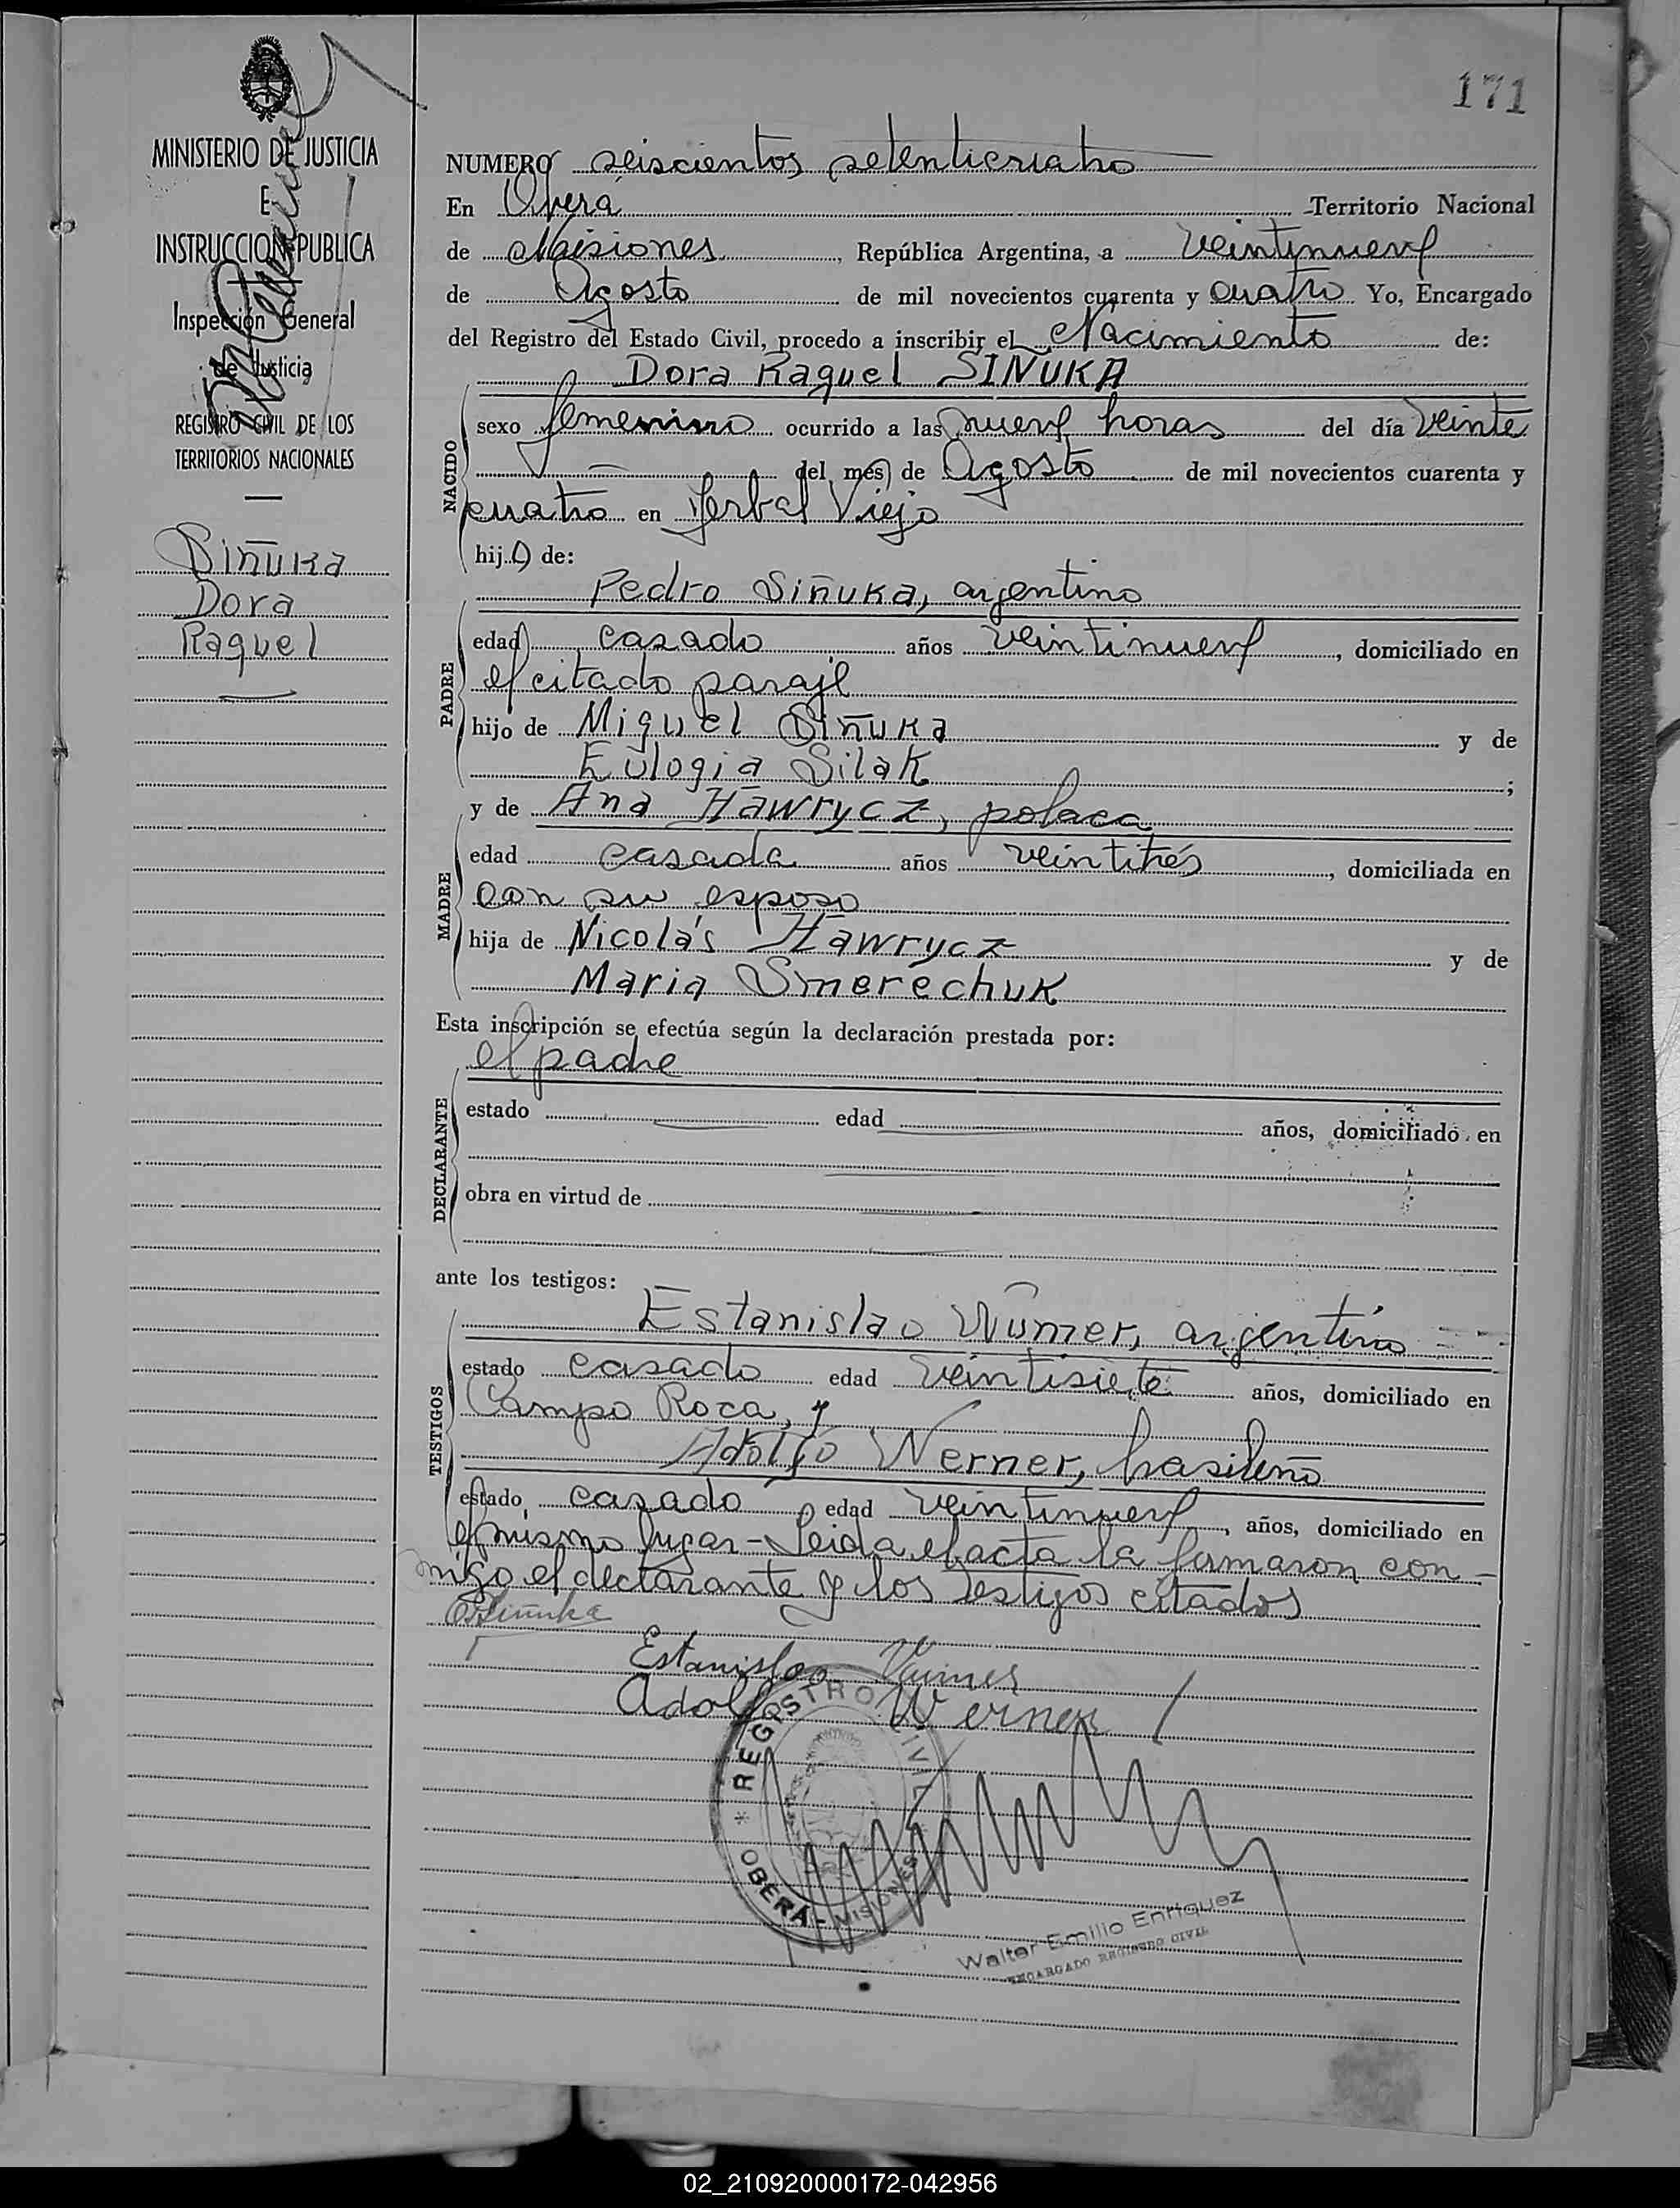 171
MINISTERIO DE JUSTICIA
E
INSTRUCCION PUBLICA
Inspección General
de Justicia
REGISTRO CIVIL DE LOS
TERRITORIOS NACIONALES
Siñuka
Dora
Raquel
NUMERO seiscientos setenticuatro
En Oberá Territorio Nacional
de Misiones, República Argentina, a veintinueve
de Agosto de mil novecientos cuarenta y cuatro Yo, Encargado
del Registro del Estado Civil, procedo a inscribir el Nacimiento de:
Dora Raquel SIÑUKA
NACIDO
sexo femenino ocurrido a las nueve horas del día veinte
del mes de Agosto de mil novecientos cuarenta y
cuatro en Yerbal Viejo
hija de:
Pedro Siñuka, argentino
PADRE
edad casado años veintinueve, domiciliado en
el citado paraje
hijo de Miguel Siñuka y de
Eulogia Silak;
MADRE
y de Ana Hawrycz, polaca
edad casada años veintitrés, domiciliada en
con su esposo
hija de Nicolás Hawrycz y de
Maria Smerechuk
Esta inscripción se efectúa según la declaración prestada por:
el padre
DECLARANTE
estado edad años, domiciliado en
obra en virtud de
ante los testigos:
TESTIGOS
Estanislao Wumer, argentino
estado casado edad veintisiete años, domiciliado en
Campo Roca, y
Adolfo Werner, brasileño
estado casado edad veintinueve, años, domiciliado en
el mismo lugar - Leida el acta la firmaron con-
migo el declarante y los testigos citados
Siñuka
Estanislao
Adolfo Werner
REGISTRO CIVIL
OBERÁ - MISIONES
Walter Emilio Enriquez
ENCARGADO REGISTRO CIVIL
02_210920000172-042956